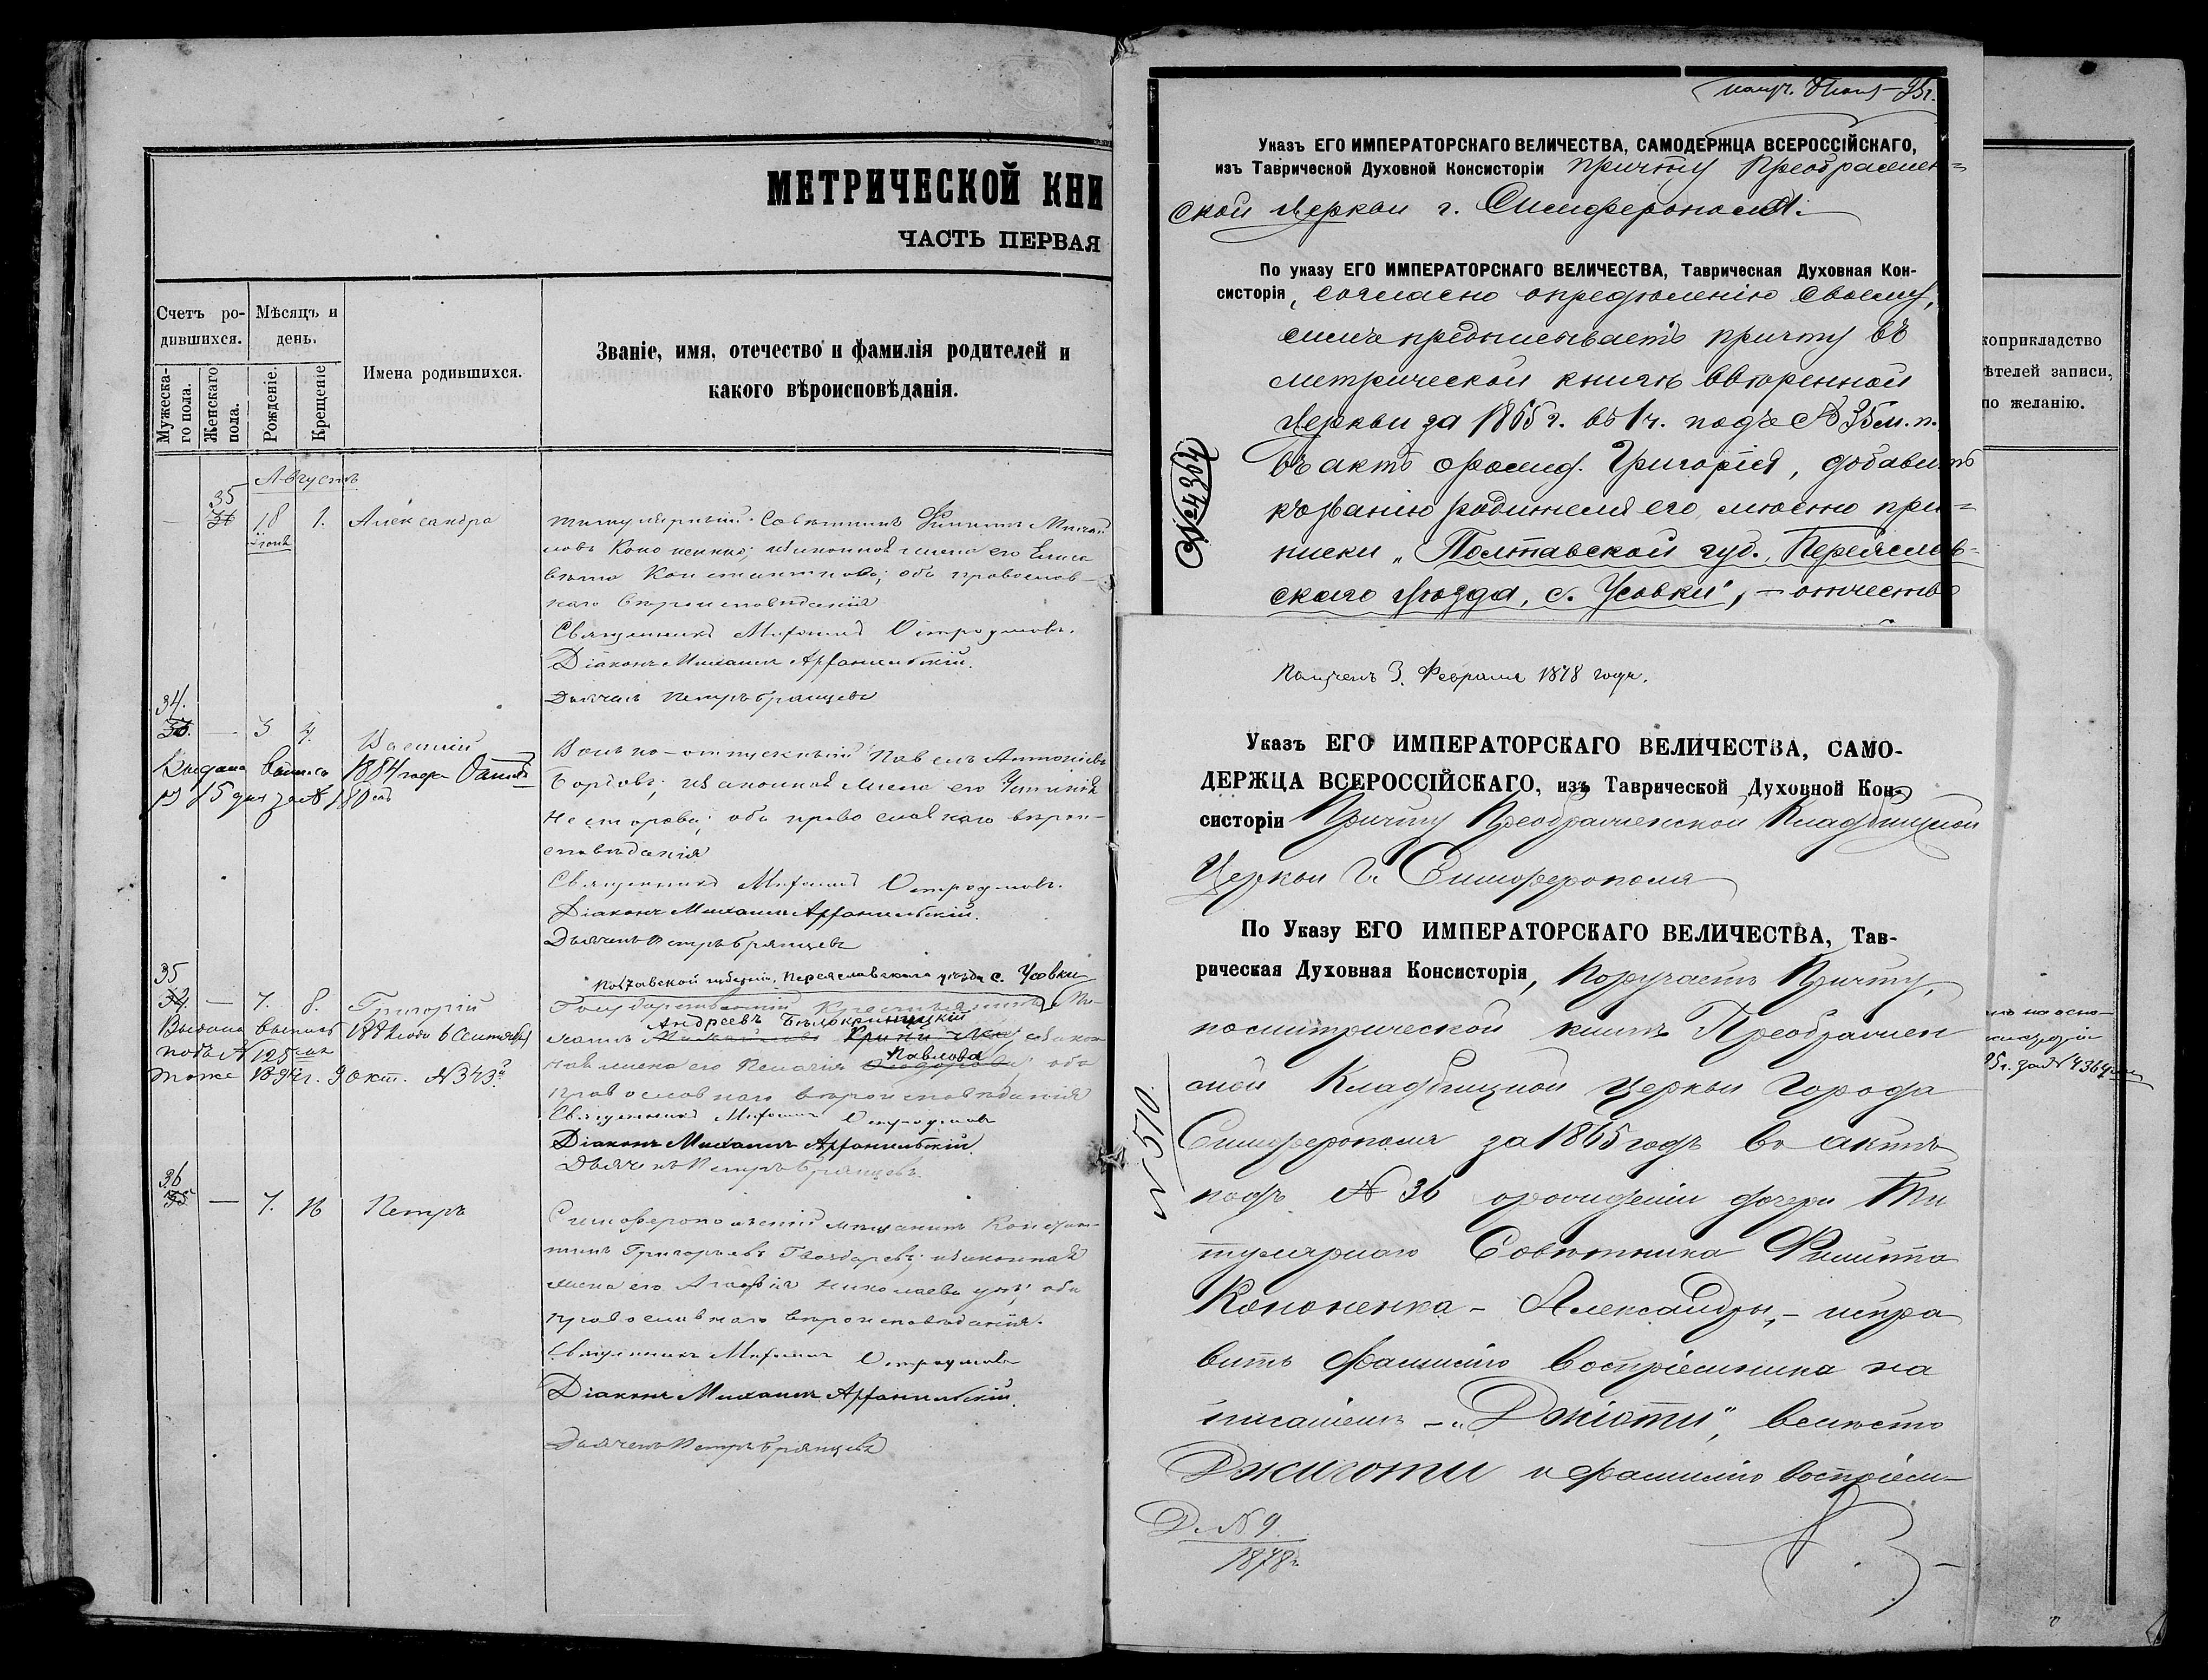 МЕТРИЧЕСКОЙ КНИ
ЧАСТЬ ПЕРВАЯ
Счетъ ро-
дившихся.
Мѣсяцъ и
день.
Мужеска-
го пола.
Женскаго
пола.
Рожденіе.
Крещеніе
Имена родившихся.
Званіе, имя, отечество и фамилія родителей и
какого вѣроисповѣданія.
Августъ
35
— 34 18 1. Александра
Іюля
Титулярный Совѣтникъ Филиппъ
Кононенко; и законная жена его Елиса
вета Константинова; оба православ-
наго вѣроисповѣданія
Священникъ Михаилъ
Діаконъ Михаилъ
Дьячекъ Петръ Брянцевъ
34.
33. — 3 4. Василій
Выдана выпись 1884 года
15 дня за № 180
Вольно-отпускный Павелъ Антоніевъ
законная жена его
Несторова; оба православнаго вѣрои-
сповѣданія
Священникъ Михаилъ
Діаконъ Михаилъ
Дьячекъ Петръ Брянцевъ
35
34 — 7. 8. Григорій
Выдана выпись 6 Сентября
подъ № 125
тоже 1894 г. 9 окт. № 343
Полтавской губерніи, Переяславскаго уѣзда с. Усовки
Государственный Крестьянинъ
Андреевъ Бѣлокриницкій
Павлова
ная жена его Пелагія оба
православнаго вѣроисповѣданія
Священникъ Михаилъ
Діаконъ Михаилъ
Дьячекъ Петръ Брянцевъ.
36
35 — 7. 16 Петръ
Симферопольскій мѣщанинъ
Григорьевъ и законная
жена его Агафія Николаева оба
православнаго вѣроисповѣданія.
Священникъ Михаилъ
Діаконъ Михаилъ
Дьячекъ Петръ Брянцевъ
Указъ ЕГО ИМПЕРАТОРСКАГО ВЕЛИЧЕСТВА, САМОДЕРЖЦА ВСЕРОССІЙСКАГО,
изъ Таврической Духовной Консисторіи причту Преображен-
ской церкви г. Симферополя.
По указу ЕГО ИМПЕРАТОРСКАГО ВЕЛИЧЕСТВА, Таврическая Духовная Кон-
систорія, согласно опредѣленію своему,
симъ предписываетъ причту въ
метрической книгѣ ввѣренной
церкви за 1865 г. въ 1 ч. подъ № 35 м. п.
въ актѣ о рожд. Григорія, добавить
къ званію родителя его мѣсто при-
писки „Полтавской губ., Переяслав-
скаго уѣзда, с. Усовки", — отчество
№ 4364
Полученъ 3. Февраля 1878 года.
Указъ ЕГО ИМПЕРАТОРСКАГО ВЕЛИЧЕСТВА, САМО-
ДЕРЖЦА ВСЕРОССІЙСКАГО, изъ Таврической Духовной Кон-
систоріи Причту Преображенской Кладбищной
Церкви г. Симферополя
По Указу ЕГО ИМПЕРАТОРСКАГО ВЕЛИЧЕСТВА, Тав-
рическая Духовная Консисторія, Поручаетъ Причту,
по метрической книгѣ Преображен
ской Кладбищной церкви города
Симферополя за 1865 годъ въ актѣ
подъ № 36 о рожденіи дочери Ти
тулярнаго Совѣтника Филиппа
Кононенка — Александры, — испра
вить фамилію воспріемника на
писаніемъ — „Джіоти", вмѣсто
Джиготи и фамилію воспріем-
№ 510
Д. № 9
1878 г.
коприкладство
ѣтелей записи,
по желанію.
но на осно-
95 г. за № 4364